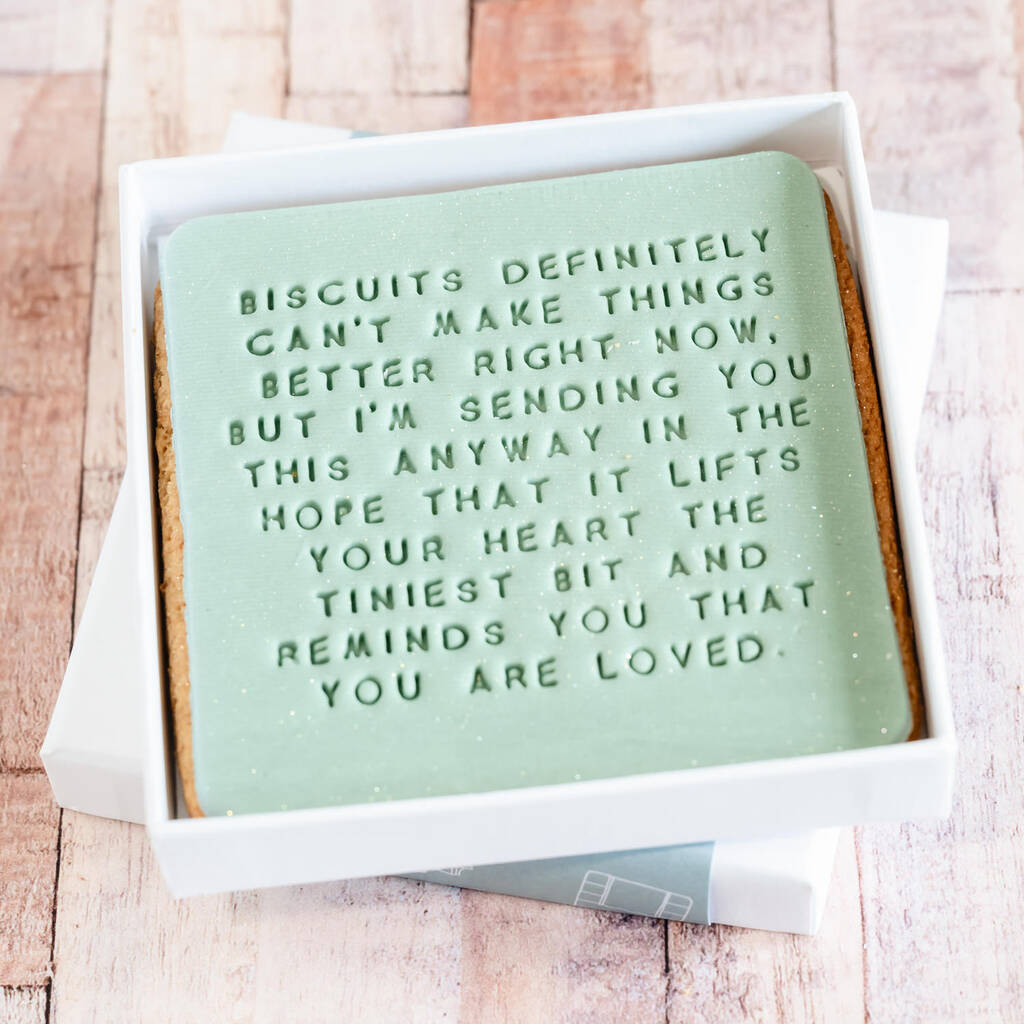 BISCUITS DEFINITELY
CAN'T MAKE THINGS
BETTER RIGHT NOW,
BUT I'M SENDING YOU
THIS ANYWAY IN THE
HOPE THAT IT LIFTS
YOUR HEART THE
TINIEST BIT AND
REMINDS YOU THAT
YOU ARE LOVED.